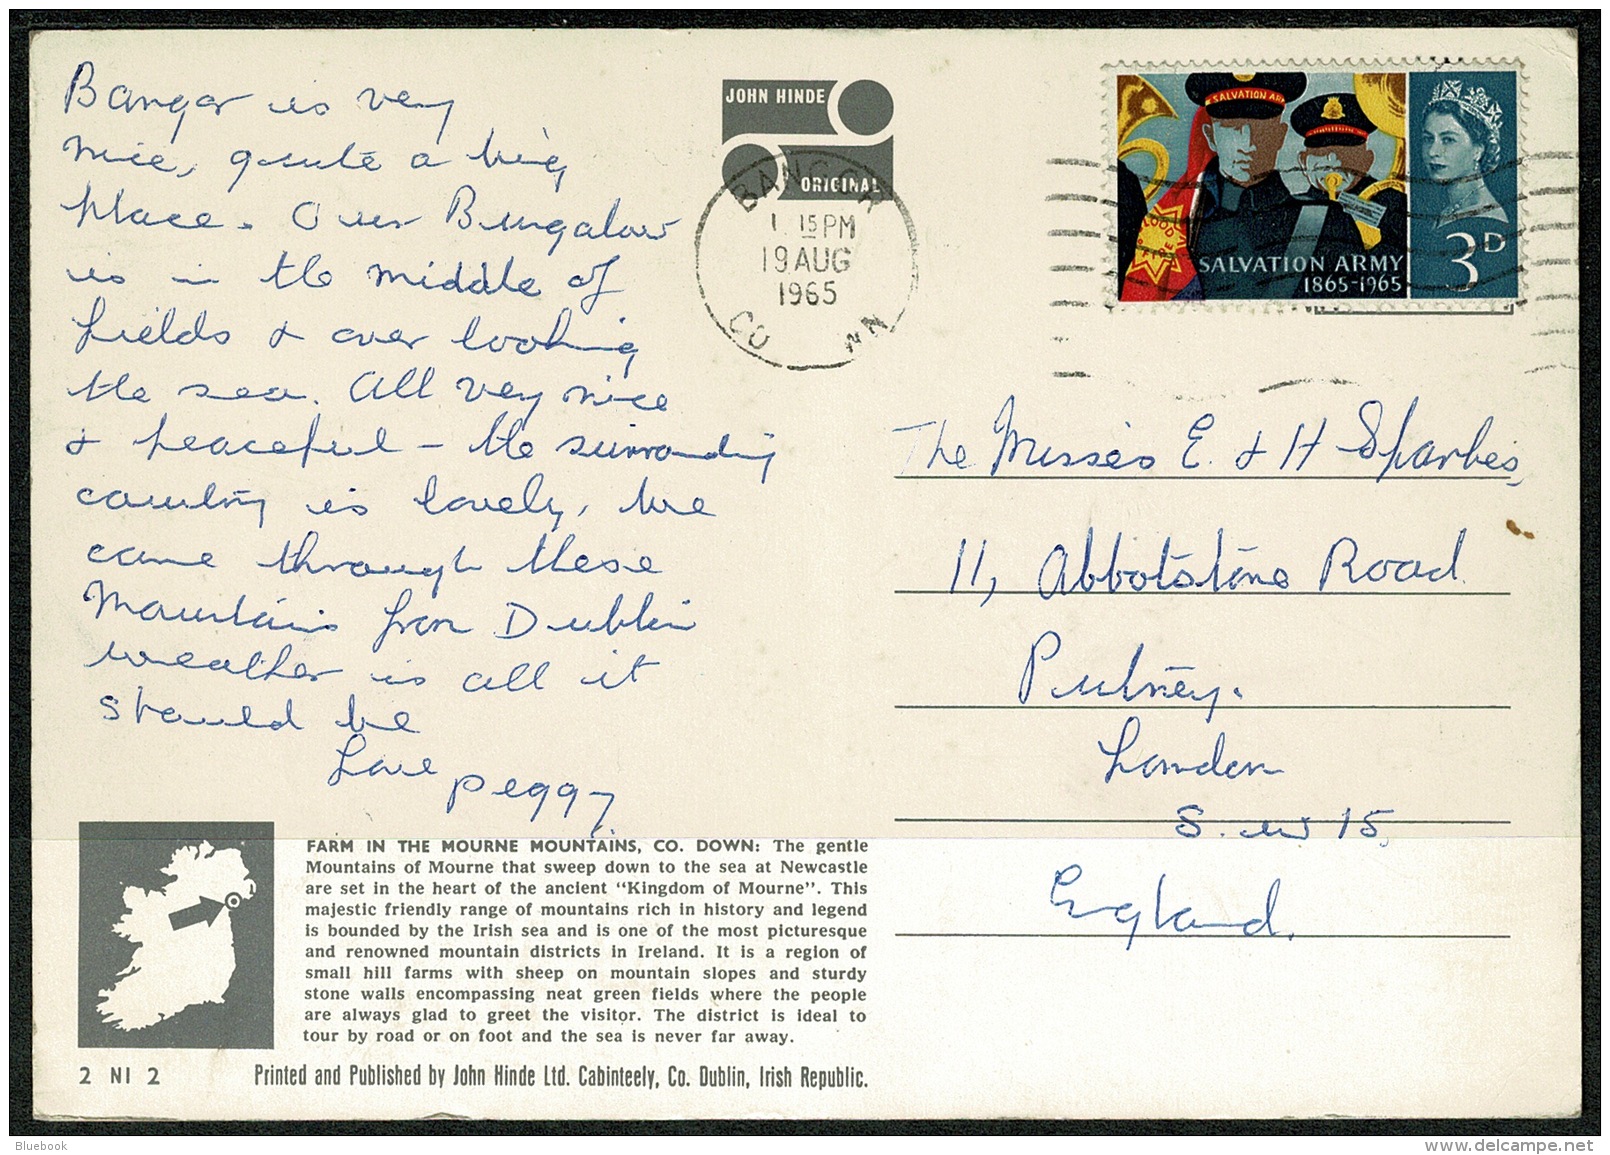 Bangor is very
nice, quite a big
place. Our Bungalow
is in the middle of
fields & over looking
the sea. All very nice
& peaceful - the surrounding
country is lovely, we
came through these
Mountains from Dublin
weather is all it
should be
Love Peggy
JOHN HINDE
ORIGINAL
BANGOR
1 15 PM
19 AUG
1965
CO DOWN
SALVATION ARMY
1865-1965
3D
The Misses E. & H Sparkes,
11, Abbotstone Road
Putney.
London
S.W 15,
England.
FARM IN THE MOURNE MOUNTAINS, CO. DOWN: The gentle
Mountains of Mourne that sweep down to the sea at Newcastle
are set in the heart of the ancient "Kingdom of Mourne". This
majestic friendly range of mountains rich in history and legend
is bounded by the Irish sea and is one of the most picturesque
and renowned mountain districts in Ireland. It is a region of
small hill farms with sheep on mountain slopes and sturdy
stone walls encompassing neat green fields where the people
are always glad to greet the visitor. The district is ideal to
tour by road or on foot and the sea is never far away.
2 NI 2
Printed and Published by John Hinde Ltd. Cabinteely, Co. Dublin, Irish Republic.
Bluebook
www.delcampe.net